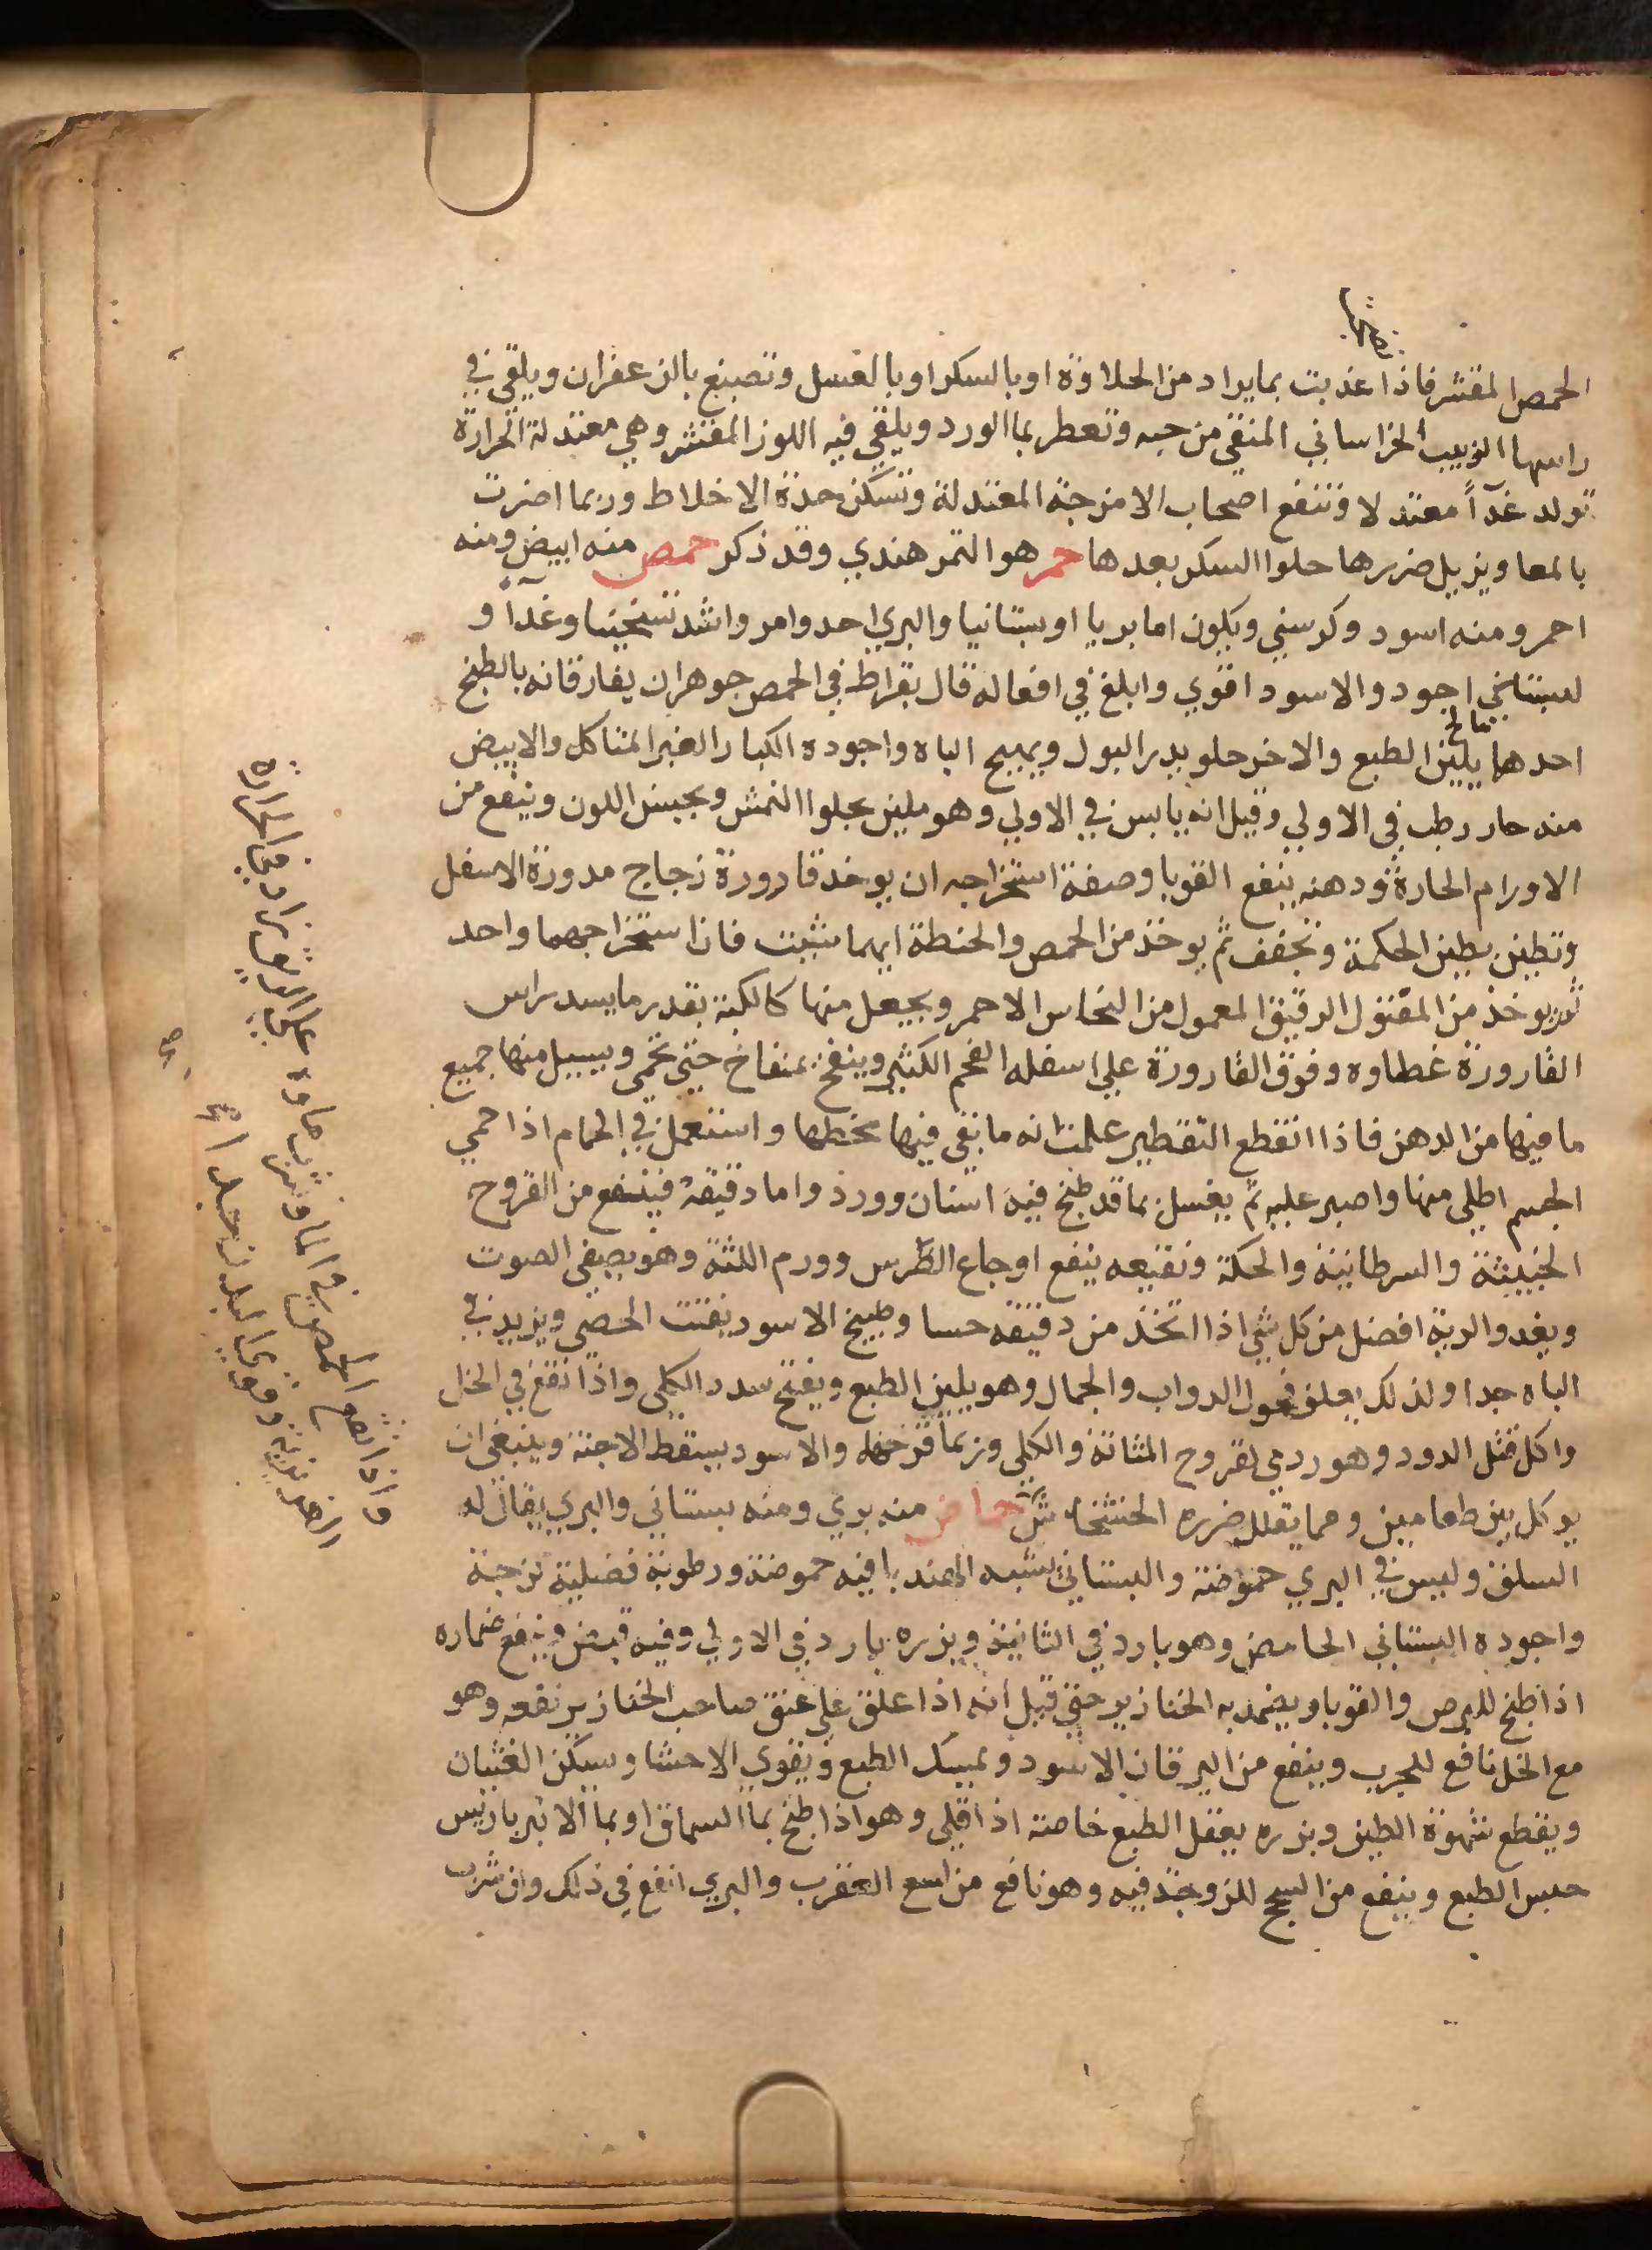 الحمص المقشر فاذا عذبت بما يراد من الحلاوة او بالسكر او بالعسل وتصبغ بالزعفران ويلقى في
راسها الزبيب الخراساني المنقى من حبه وتعطر بما الورد ويلقى فيه اللوز المقشر وهي معتدلة الحرارة
تولد غدآً معتدلا وتنفع اصحاب الامزجة المعتدلة وتسكن حدة الاخلاط وربما اضرت
بالمعا ويزيل ضررها حلوا السكر بعدها حمر هو التمر هندي وقد ذكر حمص منه ابيض ومنه
احمر ومنه اسود وكرسني ويكون اما بريا او بستانيا والبري احد وامر واشد تسخينا وغدآً و
لبستاني اجود والاسود اقوي وابلغ في افعاله قال بقراط في الحمص جوهران يفارقانه بالطبخ
احدهما مالح يلين الطبع والاخر حلو يدر البول ويهيج الباه واجوده الكبار الغير المتاكل والابيض
منه حار رطب في الاولي وقيل انه يابس في الاولي وهو ملين يجلوا النمش ويحسن اللون وينفع من
الاورام الحارة ودهنه ينفع القوبا وصفة استخراجه ان يوخذ قارورة زجاج مدورة الاسفل
وتطين بطين الحكمة وتجفف ثم يوخذ من الحمص والحنطة ايهما شيت فان استخراجهما واحد
ثم يوخذ من المفتول الرقيق المعمول من النحاس الاحمر ويجعل منها كالكبة بقدر ما يسد راس
القارورة غطاوه وفوق القارورة علي اسفله الفحم الكثير وينفخ بمنفاخ حتي تحمي ويسيل منها جميع
ما فيها من الدهن فاذا انقطع التقطير علمت انه ما بقى فيها فحطها واستعمل في الحمام اذا حمي
الجسم اطلي منها واصبر عليه ثم يغسل بما قد طبخ فيه اشنان وورد واما دقيقه فينفع من القروح
الخبيثة والسرطانية والحكة ونقيعه ينفع اوجاع الضرس وورم اللثة وهو يصفى الصوت
ويغدوا الرية افضل من كل شي اذا اتخذ من دقيقه حسا وطبيخ الاسود يفتت الحصى ويزيد في
الباه جدا ولذلك يعلف فحول الدواب والجمال وهو يلين الطبع ويفتح سدد الكلى واذا نقع في الخل
واكل قتل الدود وهو ردي لقروح المثانة والكلي وربما قرحها والاسود يسقط الاجنة وينبغي ان
يوكل بين طعامين ومما يقلل ضرره الخشخاش حماض منه بري ومنه بستاني والبري يقال له
السلق وليس في البري حموضة والبستاني يشبه الهندبا فيه حموضة ورطوبة فضلية لزجة
واجوده البستاني الحامض وهو بارد في الثانية وبزره بارد في الاولي وفيه قبض وينفع ضماده
اذا طبخ للبرص والقوبا ويضمد به الخنازير حتي قيل انه اذا علق علي عنق صاحب الخنازير نفعه وهو
مع الخل نافع للجرب وينفع من اليرقان الاسود ويمسك الطبع ويقوي الاحشا ويسكن الغثيان
ويقطع شهوة الطين وبزره يعقل الطبع خاصة اذا قلي وهو اذا طبخ بما السماق او بما الانبرباريس
حبس الطبع وينفع من السحج للزوجة فيه وهو نافع من لسع العقرب والبري انفع في ذلك وان شرب